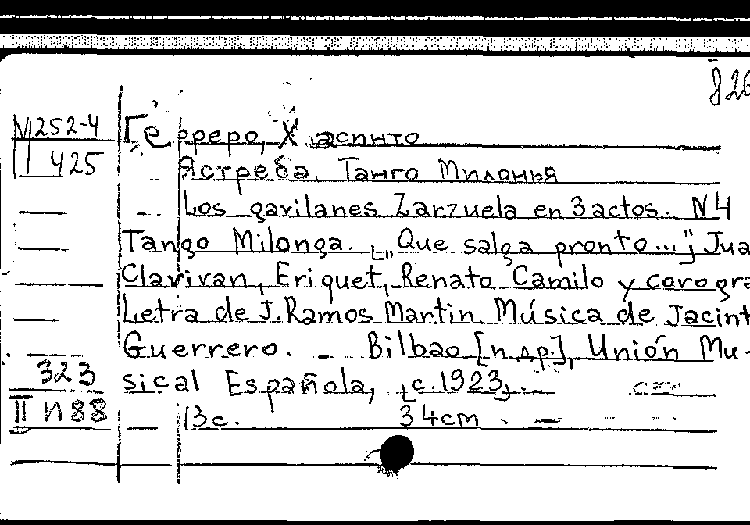 826
N252-4 Герреро, Хасинто
II 425 Ястреба. Танго Милонья
Los gavilanes Zarzuela en 3 actos. N4
Tango Milonga. [„Que salga pronto..."] Jua
Clavivan, Eriquet, Renato Camilo y coro gra
Letra de J. Ramos Martin. Música de Jacint
Guerrero. – Bilbao [и др.], Unión Mu-
323 sical Española, [c. 1923].
II И88 13c. 34cm